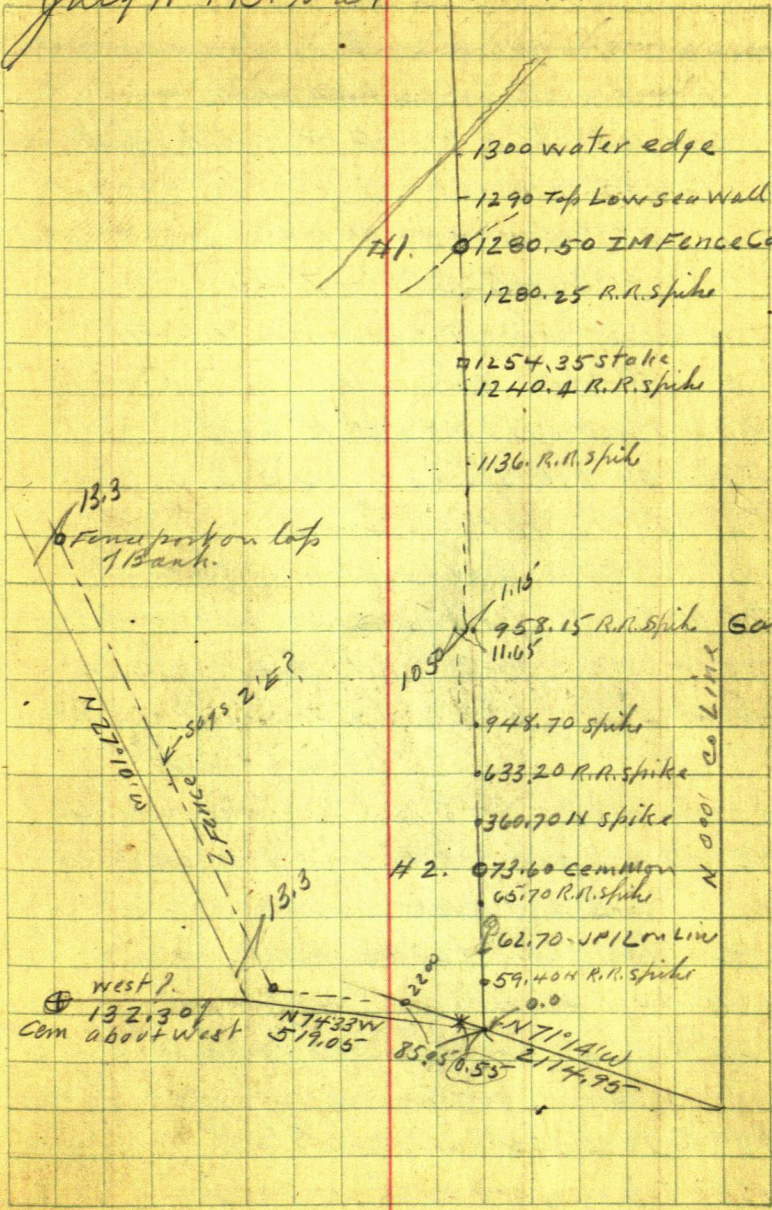 1300 water edge
1290 Top Low sea Wall
#1. 1280.50 IM Fence Co
1280.25 R.R. Spike
1254.35 stake
1240.4 R.R. spike
1136. R.R. spik
13.3
Fence post on top
Bank.
1.15
958.15 R.R. Spik
11.65
says 2' E?
948.70 spike
633.20 R.R. spike
360.70 N spike
#2. 73.60 cem Mon
65.70 R.R. Spike
62.70 on Line
59.40 R.R. spike
N 0°01' Co Line
Fence
13.3
West?
132.30
Cem about West
N 74 33 W
519.05
22.00
0.0
85.05 0.55
N 71° 14' W
2114.95